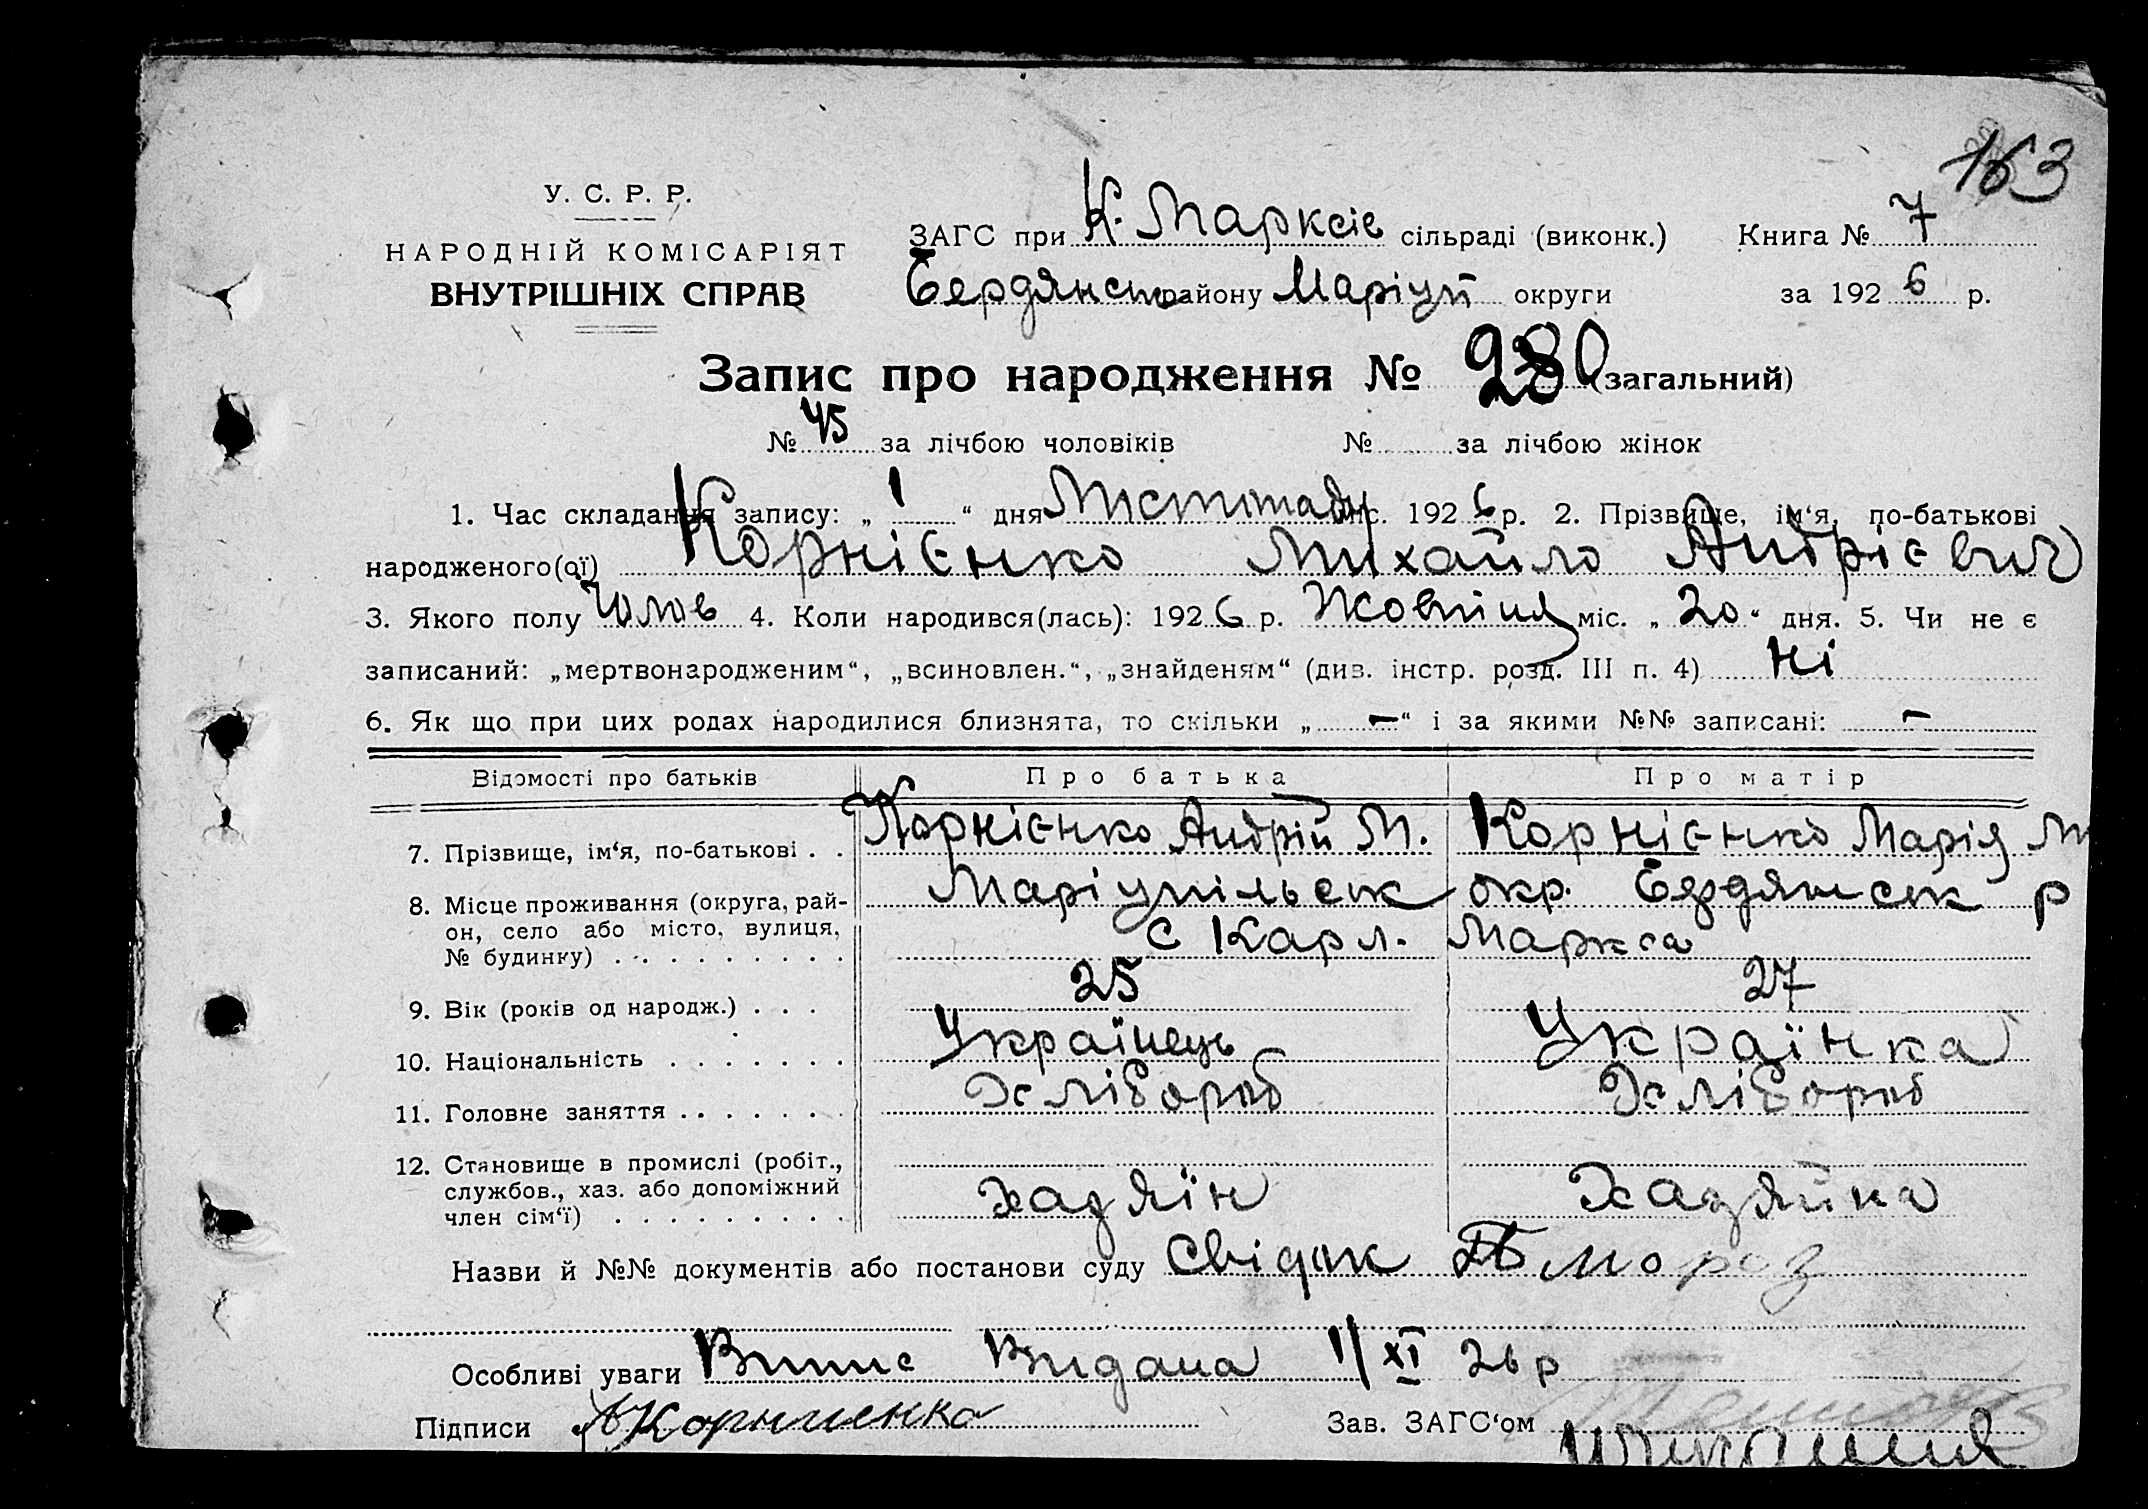 163
У. С. Р. Р.
НАРОДНІЙ КОМІСАРІЯТ
ВНУТРІШНІХ СПРАВ
ЗАГС при К. Марксів сільраді (виконк.) Книга № 7
Бердянськ району Маріуп округи за 1926 р.
Запис про народження № 280 (загальний)
№ 45 за лічбою чоловіків № за лічбою жінок
1. Час складання запису: „ 1 “ дня Листопаду міс. 1926 р. 2. Прізвище, ім‘я, по-батькові
народженого(ої) Корнієнко Михайло Андрієвич
3. Якого полу Чолов 4. Коли народився(лась): 1926 р. Жовтня міс. „ 20 “ дня. 5. Чи не є
записаний: „мертвонародженим“, „всиновлен.“, „знайденям“ (див. інстр. розд. III п. 4) Ні
6. Як що при цих родах народилися близнята, то скільки „ – “ і за якими №№ записані: –
Відомості про батьків Про батька Про матір
7. Прізвище, ім‘я, по-батькові . . Корнієнко Андрій М. Корнієнко Марія М
8. Місце проживання (округа, рай- Маріупільськ окр. Бердянськ р
он, село або місто, вулиця, С Карл. Маркса
№ будинку) . . . . . . . . . .
9. Вік (років од народж.) . . . 25 27
10. Національність . . . . . . . Українець Українка
11. Головне заняття . . . . . . . Хлібороб Хлібороб
12. Становище в промислі (робіт.,
службов., хаз. або допоміжний хазяїн Хазяйка
член сім‘ї) . . . . . . . . . .
Назви й №№ документів або постанови суду Свідок Мороз
Особливі уваги Випис Видана 1/XI 26 р
Підписи АКорниенко Зав. ЗАГС‘ом